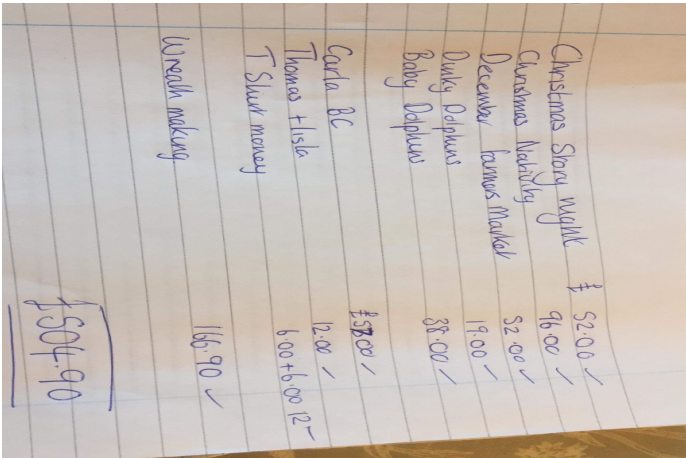 Christmas Story night £ 52.00 ✓
Christmas Nativity 96.00 ✓
December farmers Market 52.00 ✓
Dinky Dolphins 19.00 ✓
Baby Dolphins 38.00 ✓
Carla BC 12.00 ✓
Thomas + Isla 6.00+6.00 12 ✓
T Shirt money
Wreath making 166.90 ✓
£504.90